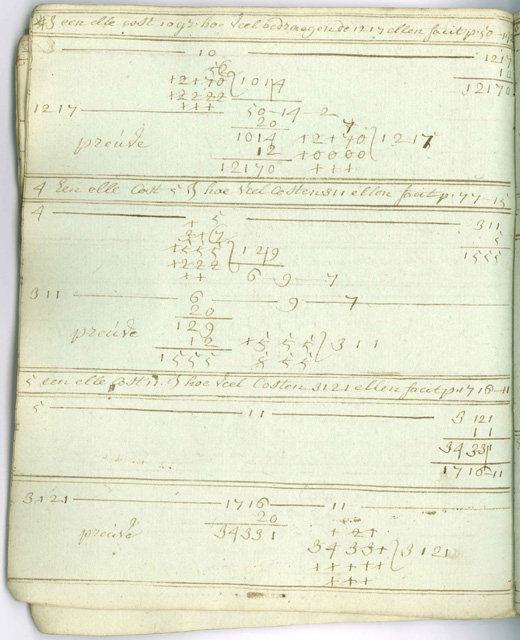 een elle cost 10 gr hoe veel bedraegen de 1217 ellen facit p 50 - 14
3 10 1217
10
12170
56
12170 1014
12222
111
1217 50 - 14 - 2
20
1014
12
12170
7
12170 1217
10000
111
preúve
4 Een elle Cost 5 hoe veel Costen 311 ellen facit p. 7 7 - 15
4 5 311
5
1555
1555 129
1222
11
6 - 9 - 7
311 6 9 7
20
129
12
1555
15 5 5 311
5 5 5
preúve
5 een elle cost 11 hoe veel Costen 3121 ellen facit p 1716 - 11
5 11 3121
11
34331
1716 11
3121 1716 11
20
34331
1 21
34331 3121
11111
111
preúve